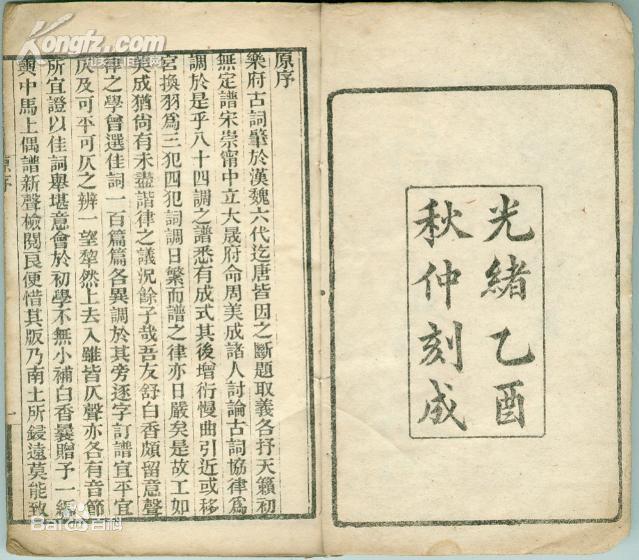 光緒乙酉
秋仲刻成
原序
樂府古詞肇於漢魏六代迄唐皆因之斷題取義各抒天籟初
無定譜宋崇甯中立大晟府命周美成諸人討論古詞協律爲
調於是乎八十四調之譜悉有成式其後增衍慢曲引近或移
宮換羽爲三犯四犯詞調日繁而譜之律亦日嚴矣是故工如
美成猶尙有未盡諧律之議況餘子哉吾友舒白香頗留意聲
律之學曾選佳詞一百篇篇各異調於其旁逐字訂譜宜平宜
仄及可平可仄之辨一望犂然上去入雖皆仄聲亦各有音節
所宜證以佳詞舉堪意會於初學不無小補白香曩贈予一編
輿中馬上偶譜新聲檢閱良便惜其版乃南土所鋟遠莫能致
原序
一
Kongfz.com
Bai百科